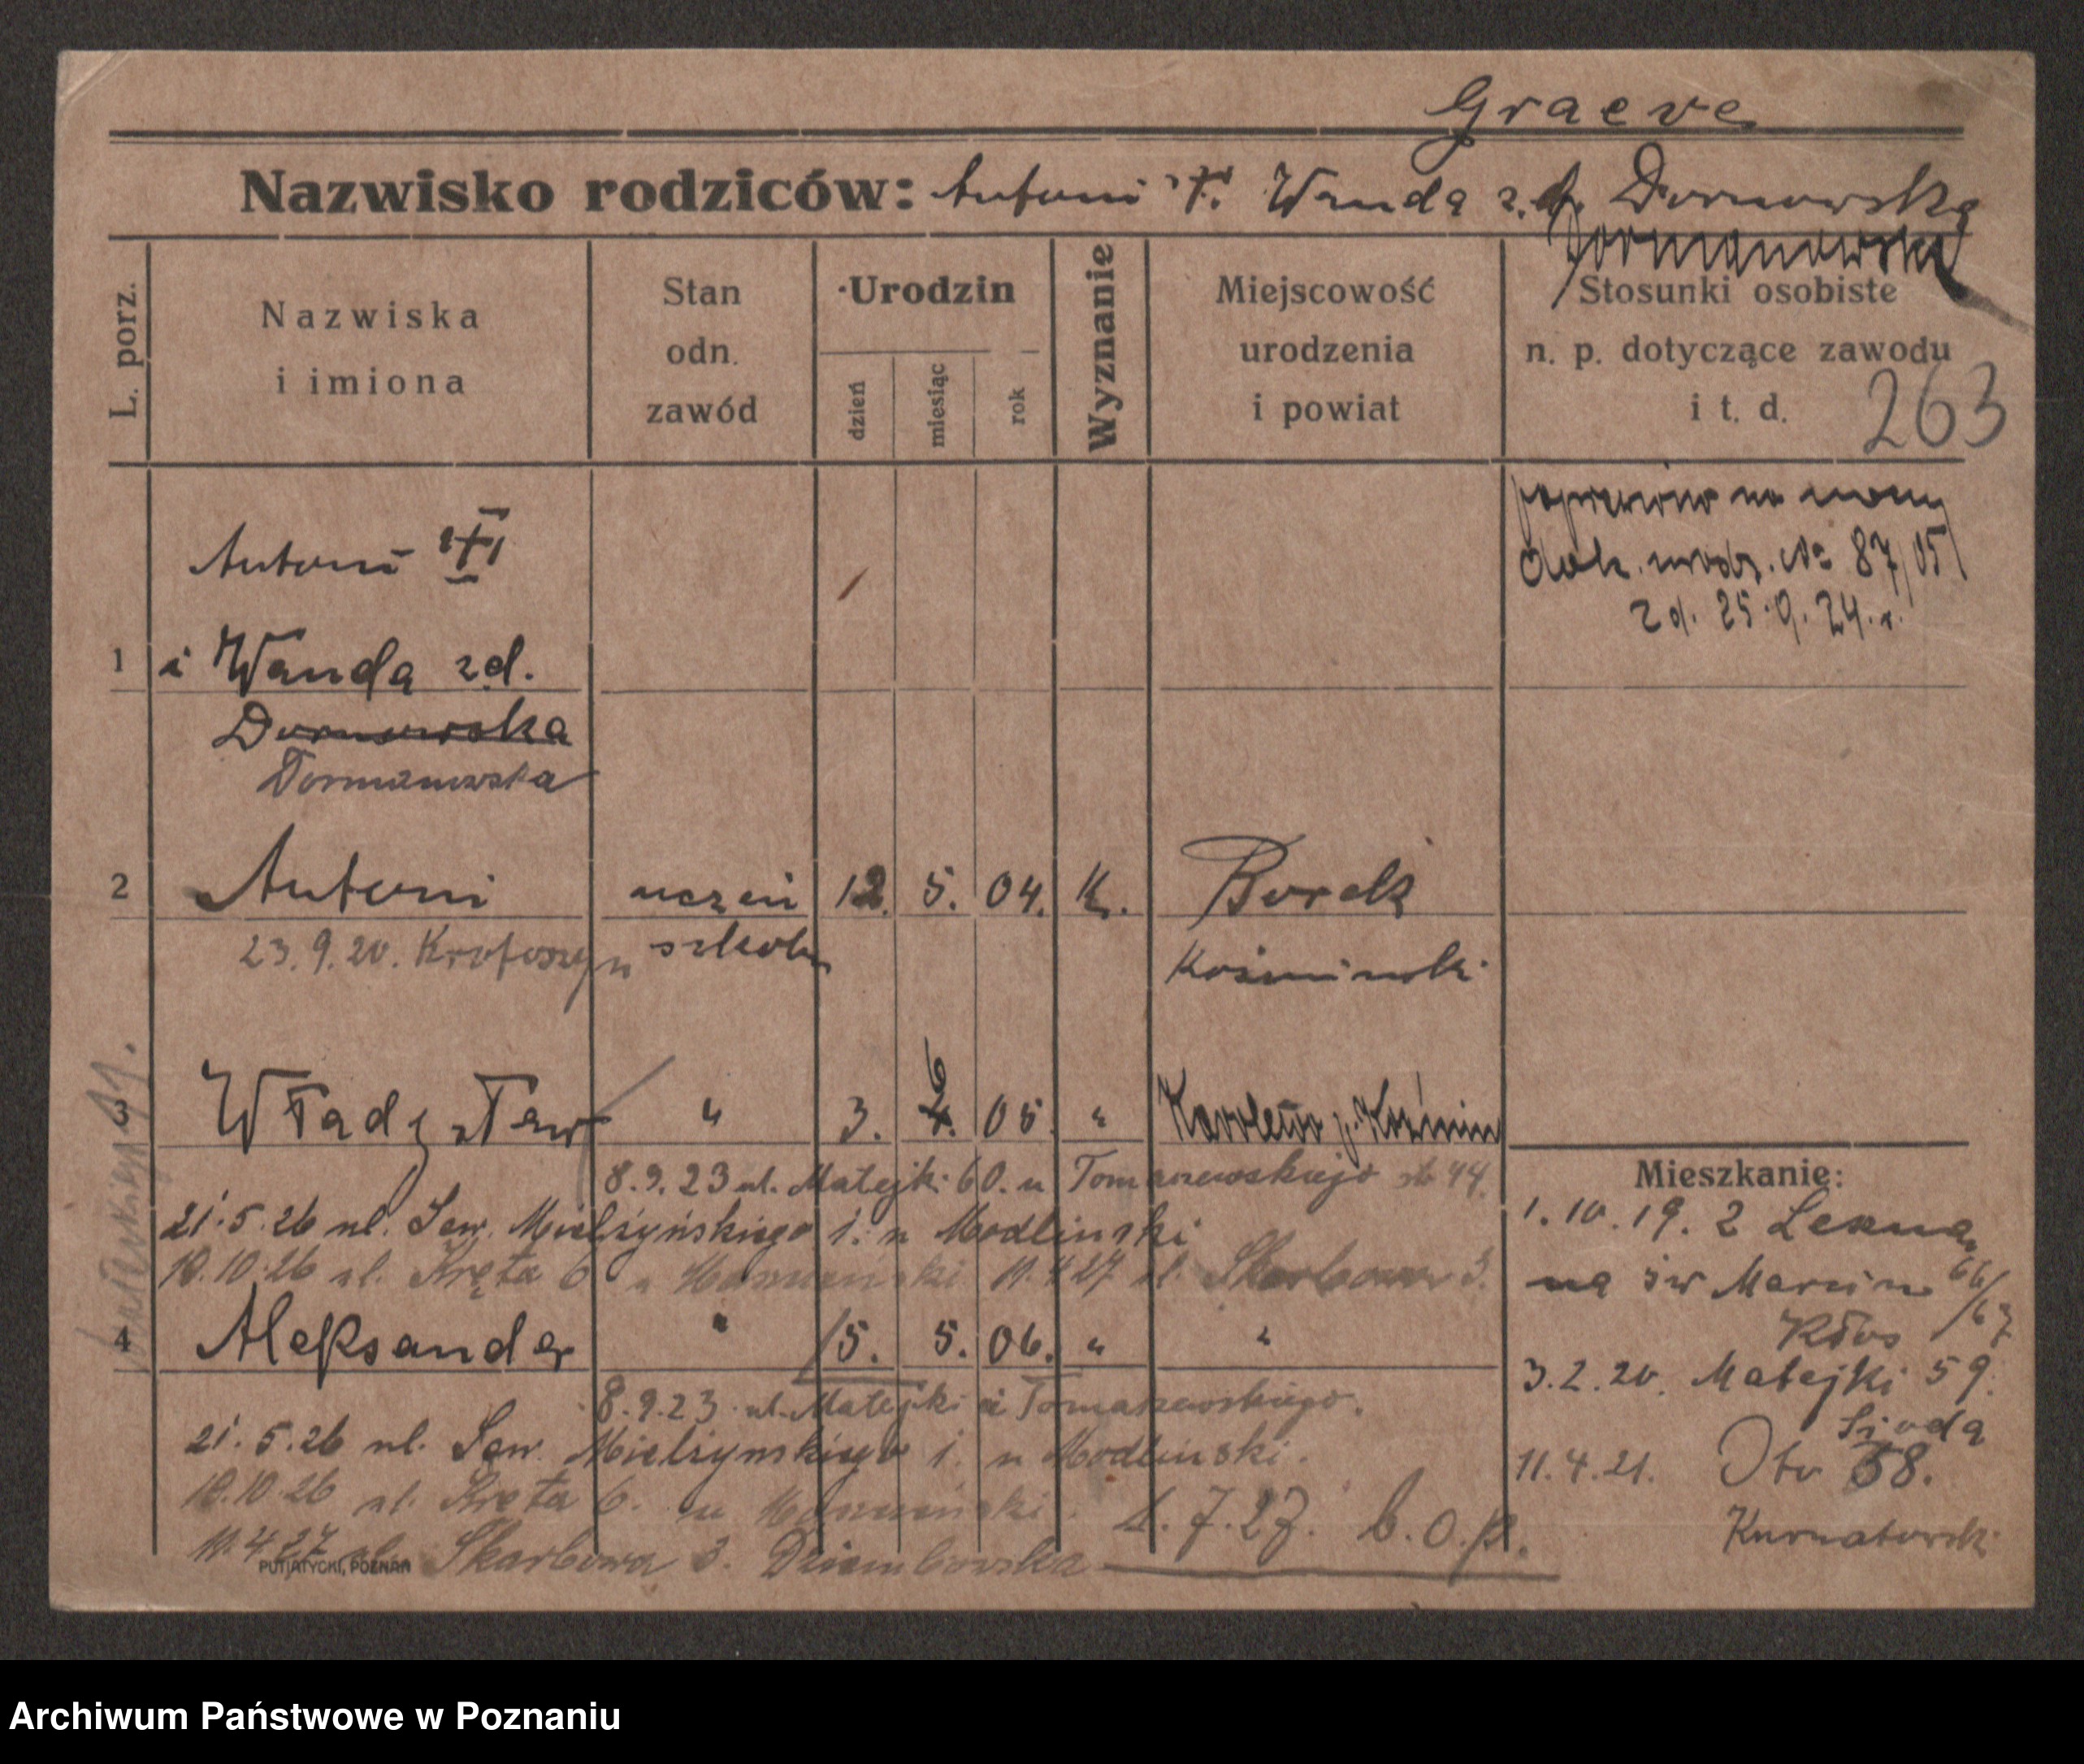 Graeve
Nazwisko rodziców: Antoni Wanda z.d. Dornowska
Dormanowska
L. porz.
Nazwiska
i imiona
Stan
odn.
zawód
Urodzin
dzień
miesiąc
rok
Wyznanie
Miejscowość
urodzenia
i powiat
Stosunki osobiste
n. p. dotyczące zawodu
i t. d.
263
Antoni
1 i Wanda z.d.
Dornowska
Dormanowska
poprawiono na mocy
dok. urodz. № 87/05
z d. 25.9.24. r.
2 Antoni uczeń 12. 5. 04. K. Borek
23.9.20. Krotoszyn szkoln Koźmiński
3 Władysław " 3. 6 05 " Karolew p. Koźmin
8.9.23 ul. Matejki 60. u Tomaszewskiego 44.
21.5.26 ul. Sew. Mielżyńskiego 1. u Modlinski
10.10.26 ul. Kręta 6 u 11.4.27 ul. Skarbowa 3.
4 Aleksander " 15. 5. 06. " "
8.9.23 ul. Matejki u Tomaszewskiego.
21.5.26 ul. Sew. Mielżynskiego 1. u Modlinski.
10.10.26 ul. Kręta 6. u
11.4.27 ul. Skarbowa 3. Dziembowska
1.7.27. b.o.p.
Mieszkanie:
1.10.19. z Lekna
na św Marcin 66/67
Kłos
3.2.20. Matejki 59.
Sioda
11.4.21. Oto 58.
Kurnatowski
PUTIATYCKI, POZNAŃ
Archiwum Państwowe w Poznaniu